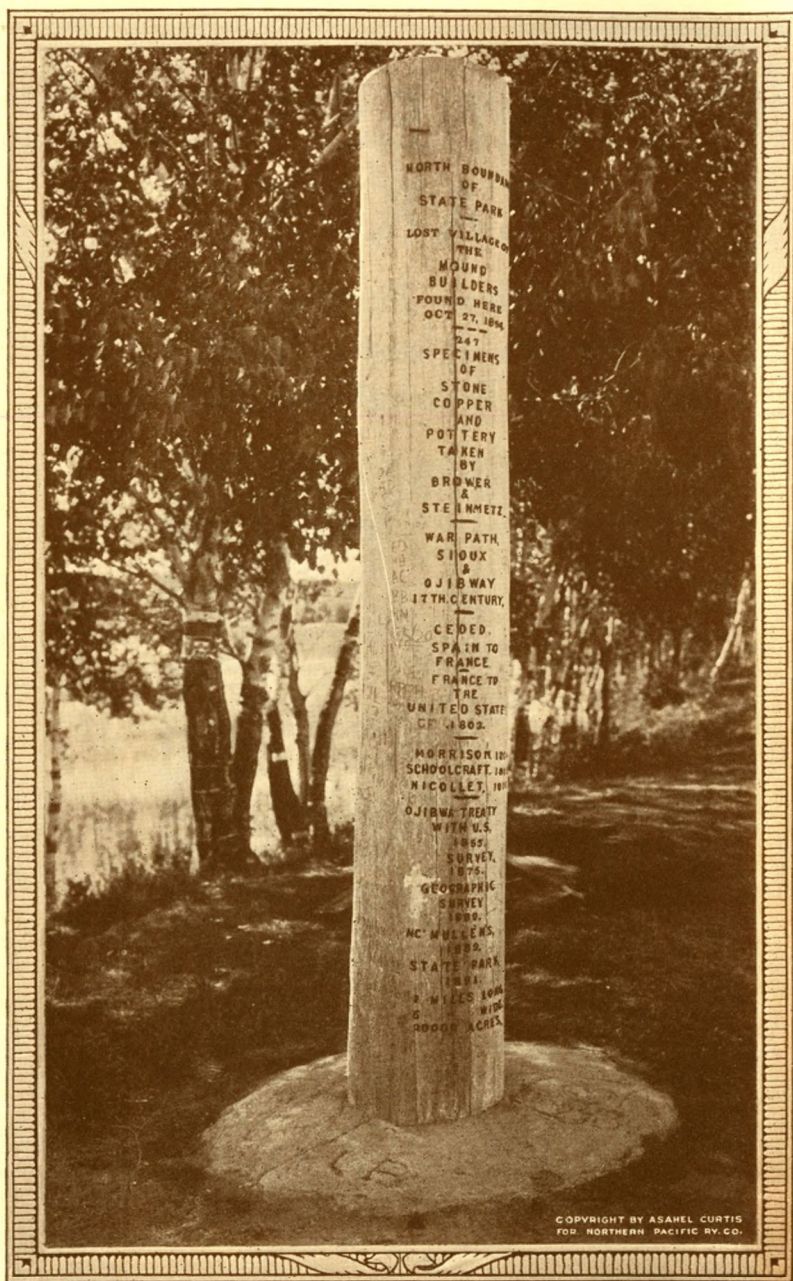 NORTH BOUNDAR
OF
STATE PARK
LOST VILLAGE OF
THE
MOUND
BUILDERS
FOUND HERE
OCT 27, 1894
247
SPECIMENS
OF
STONE
COPPER
AND
POTTERY
TAKEN
BY
BROWER
&
STEINMETZ.
WAR PATH,
SIOUX
&
OJIBWAY
17TH.CENTURY,
CEDED.
SPAIN TO
FRANCE
FRANCE TO
THE
UNITED STATE
OF .1803.
MORRISON
SCHOOLCRAFT.
NICOLLET,
OJIBWA TREATY
WITH U.S,
1855.
SURVEY,
1875.
GEOGRAPHIC
SURVEY
1889.
MC'MULLEN'S,
1889.
STATE PARK
1891.
MILES LONG
5 WIDE
ACRES,
COPYRIGHT BY ASAHEL CURTIS
FOR NORTHERN PACIFIC RY. CO.